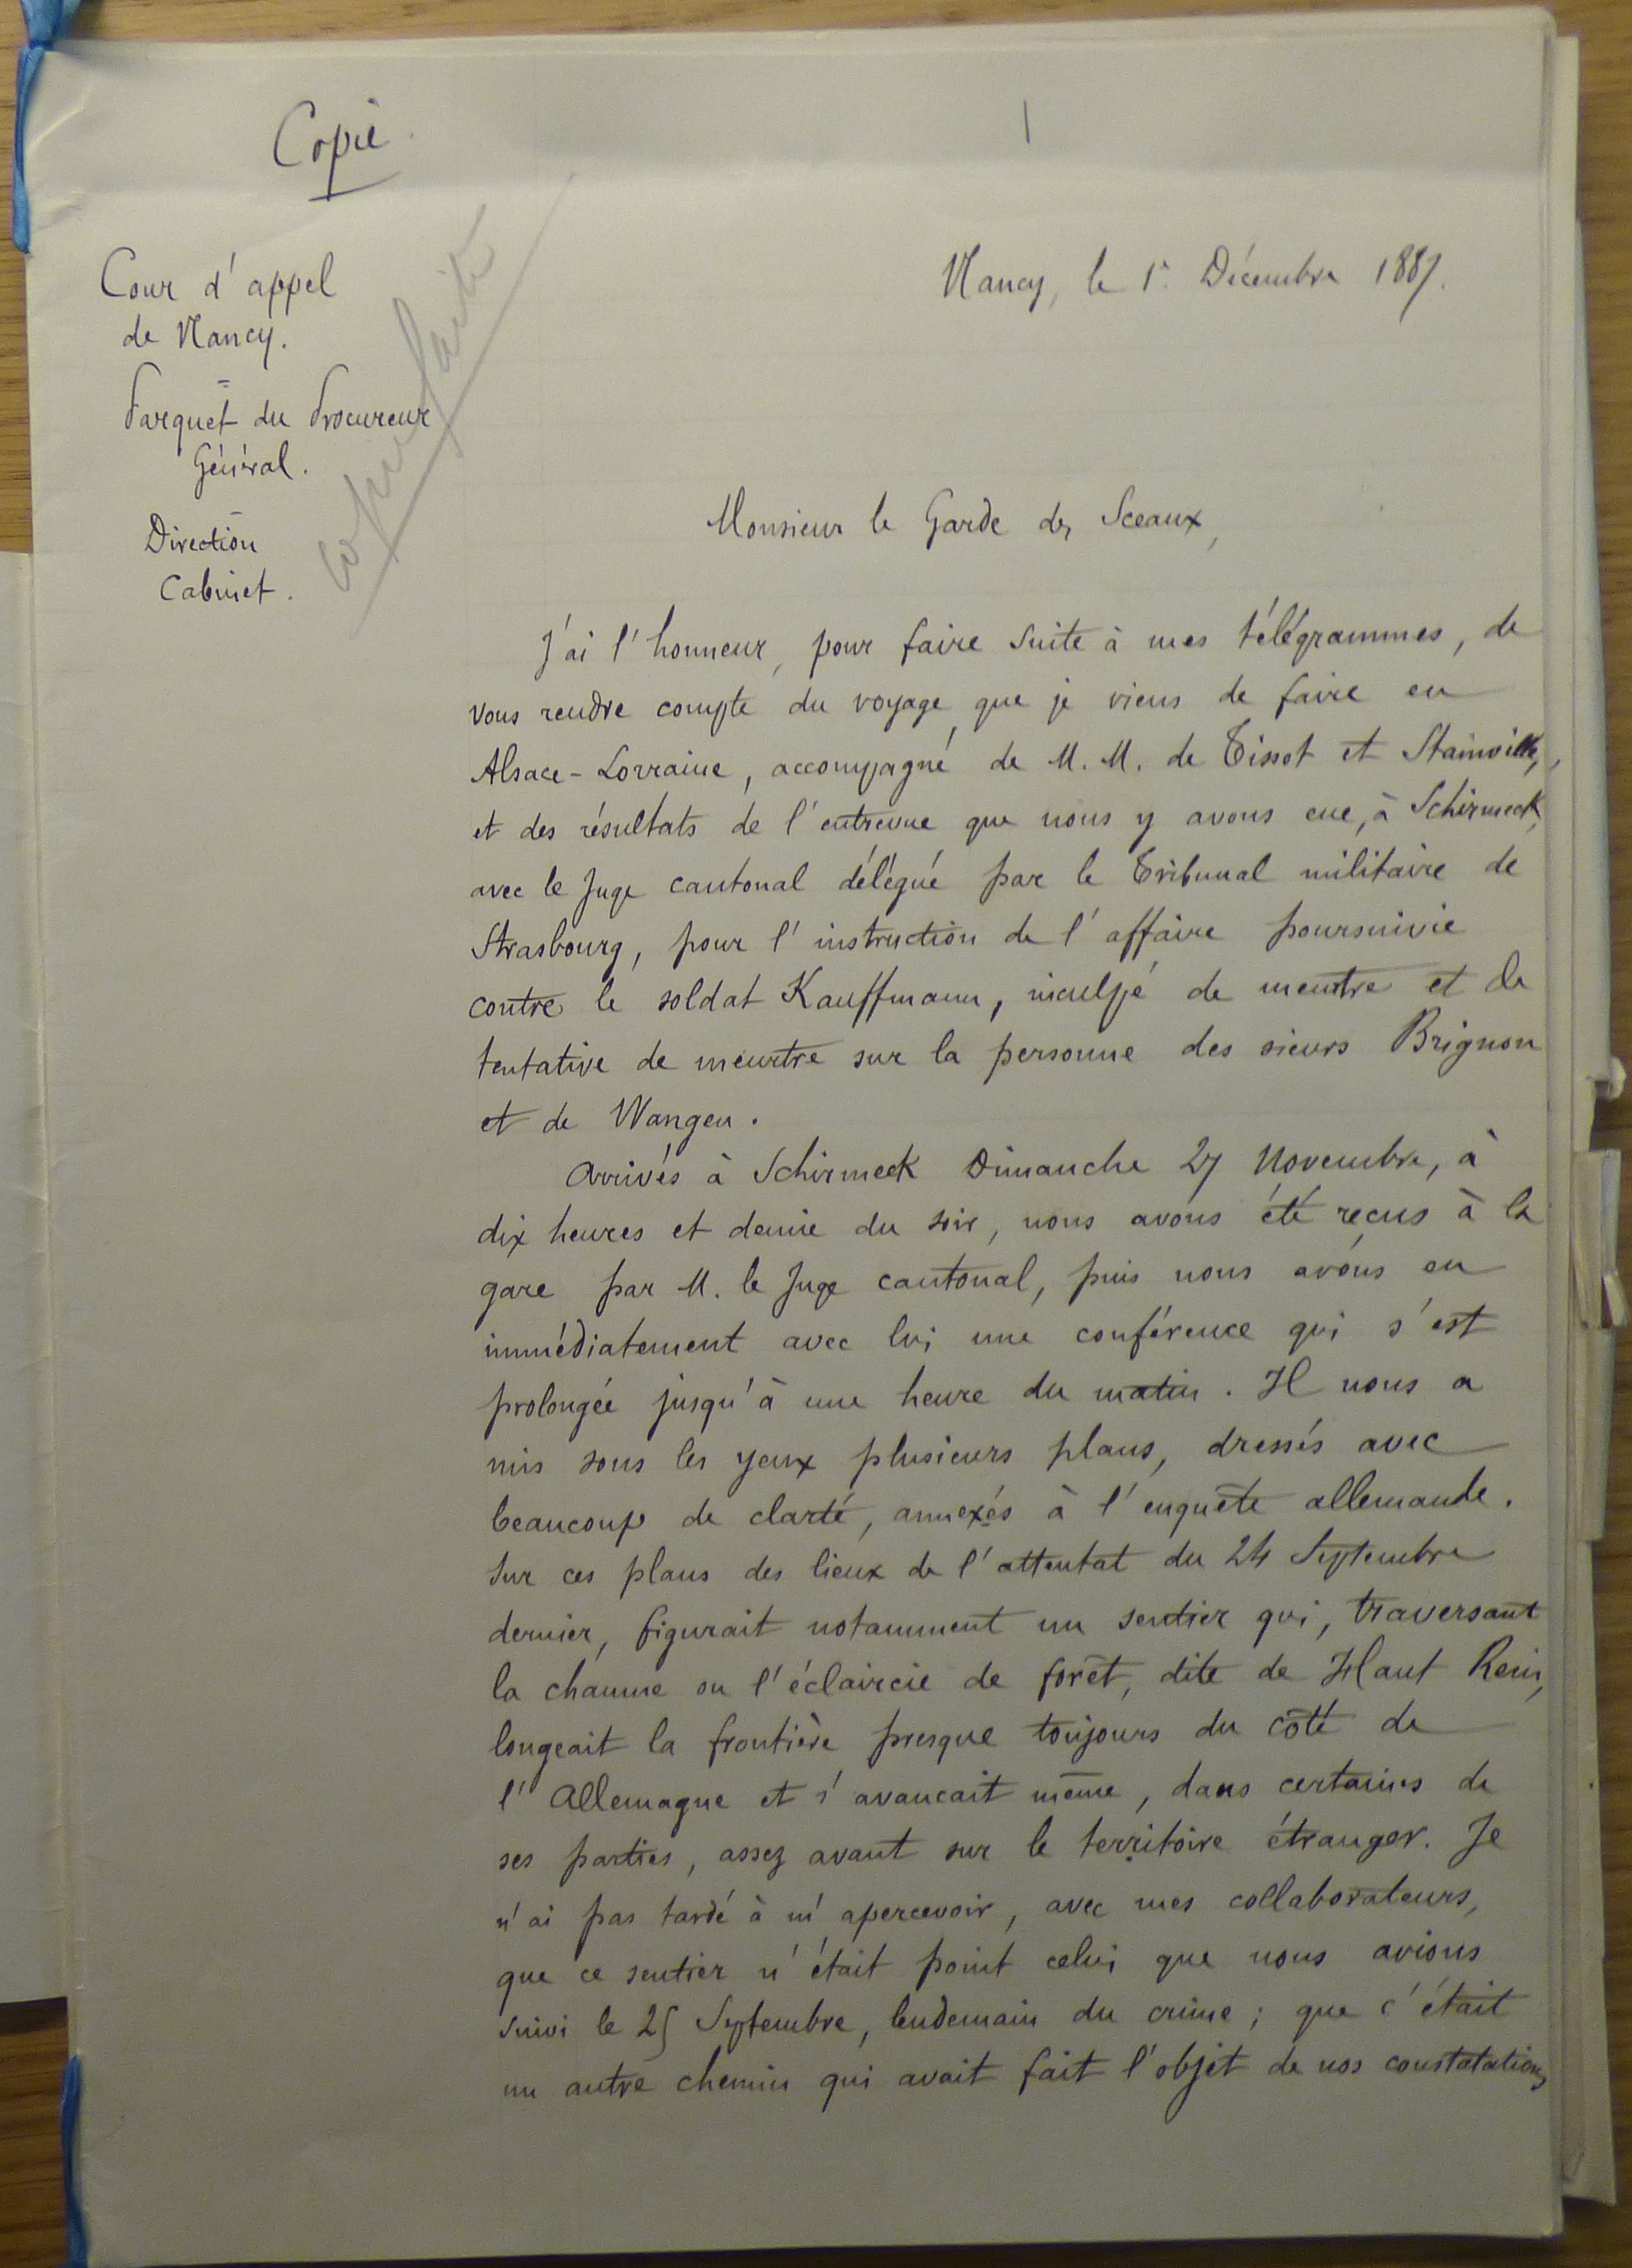 Copie
1
Cour d'appel
de Nancy.
Parquet du Procureur
Général.
Direction
Cabinet.
copie faite
Nancy, le 1er Décembre 1887.
Monsieur le Garde des Sceaux,
J'ai l'honneur, pour faire suite à mes télégrammes, de
vous rendre compte du voyage que je viens de faire en
Alsace-Lorraine, accompagné de M.M. de Tissot et Stainville,
et des résultats de l'entrevue que nous y avons eue, à Schirmeck,
avec le Juge cantonal délégué par le Tribunal militaire de
Strasbourg, pour l'instruction de l'affaire poursuivie
contre le soldat Kauffmann, inculpé de meurtre et de
tentative de meurtre sur la personne des sieurs Brignon
et de Wangen.
Arrivés à Schirmeck Dimanche 27 Novembre, à
dix heures et demie du soir, nous avons été reçus à la
gare par M. le Juge cantonal, puis nous avons eu
immédiatement avec lui une conférence qui s'est
prolongée jusqu'à une heure du matin. Il nous a
mis sous les yeux plusieurs plans, dressés avec
beaucoup de clarté, annexés à l'enquête allemande.
Sur ces plans des lieux de l'attentat du 24 Septembre
dernier, figurait notamment un sentier qui, traversant
la chaume ou l'éclaircie de forêt, dite de Haut Rein,
longeait la frontière presque toujours du côté de
l'Allemagne et s'avancait même, dans certaines de
ses parties, assez avant sur le territoire étranger. Je
n'ai pas tardé à m'apercevoir, avec mes collaborateurs,
que ce sentier n'était point celui que nous avions
suivi le 25 Septembre, lendemain du crime ; que c'était
un autre chemin qui avait fait l'objet de nos constatations